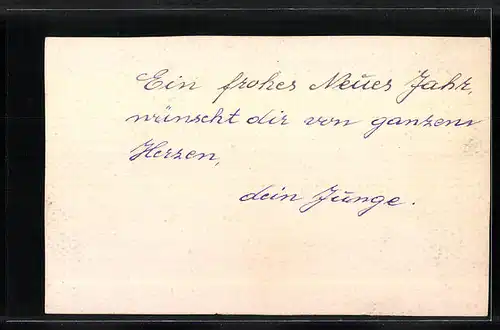 Ein frohes Neues Jahr,
wünscht dir von ganzem
Herzen,
dein Junge.